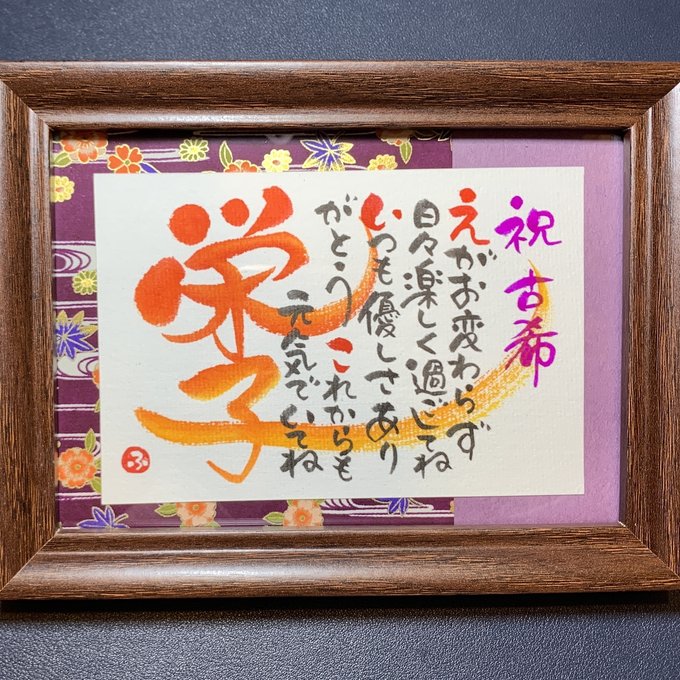 祝 古希
えがお変わらず
日々楽しく過ごしてね
いつも優しさあり
がとう これからも
元気でいてね
栄子
ふ